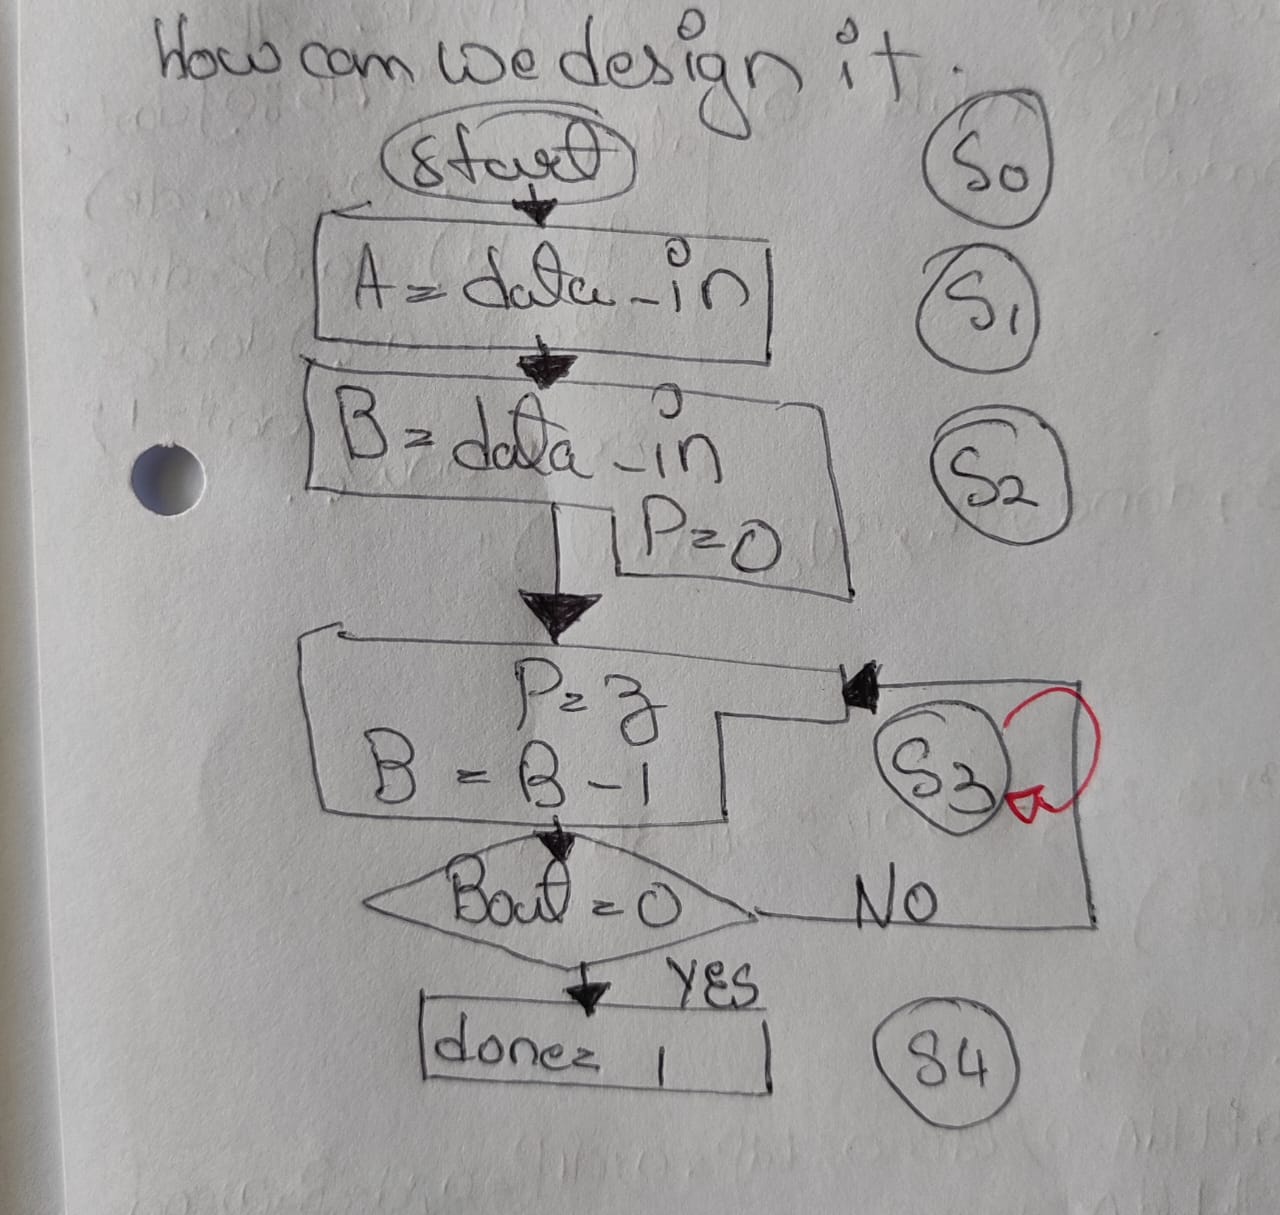 How can we design it.
Start
S0
A = data-in
S1
B = data-in
P=0
S2
P=z
B = B-1
S3
Bout=0
NO
YES
done=1
S4